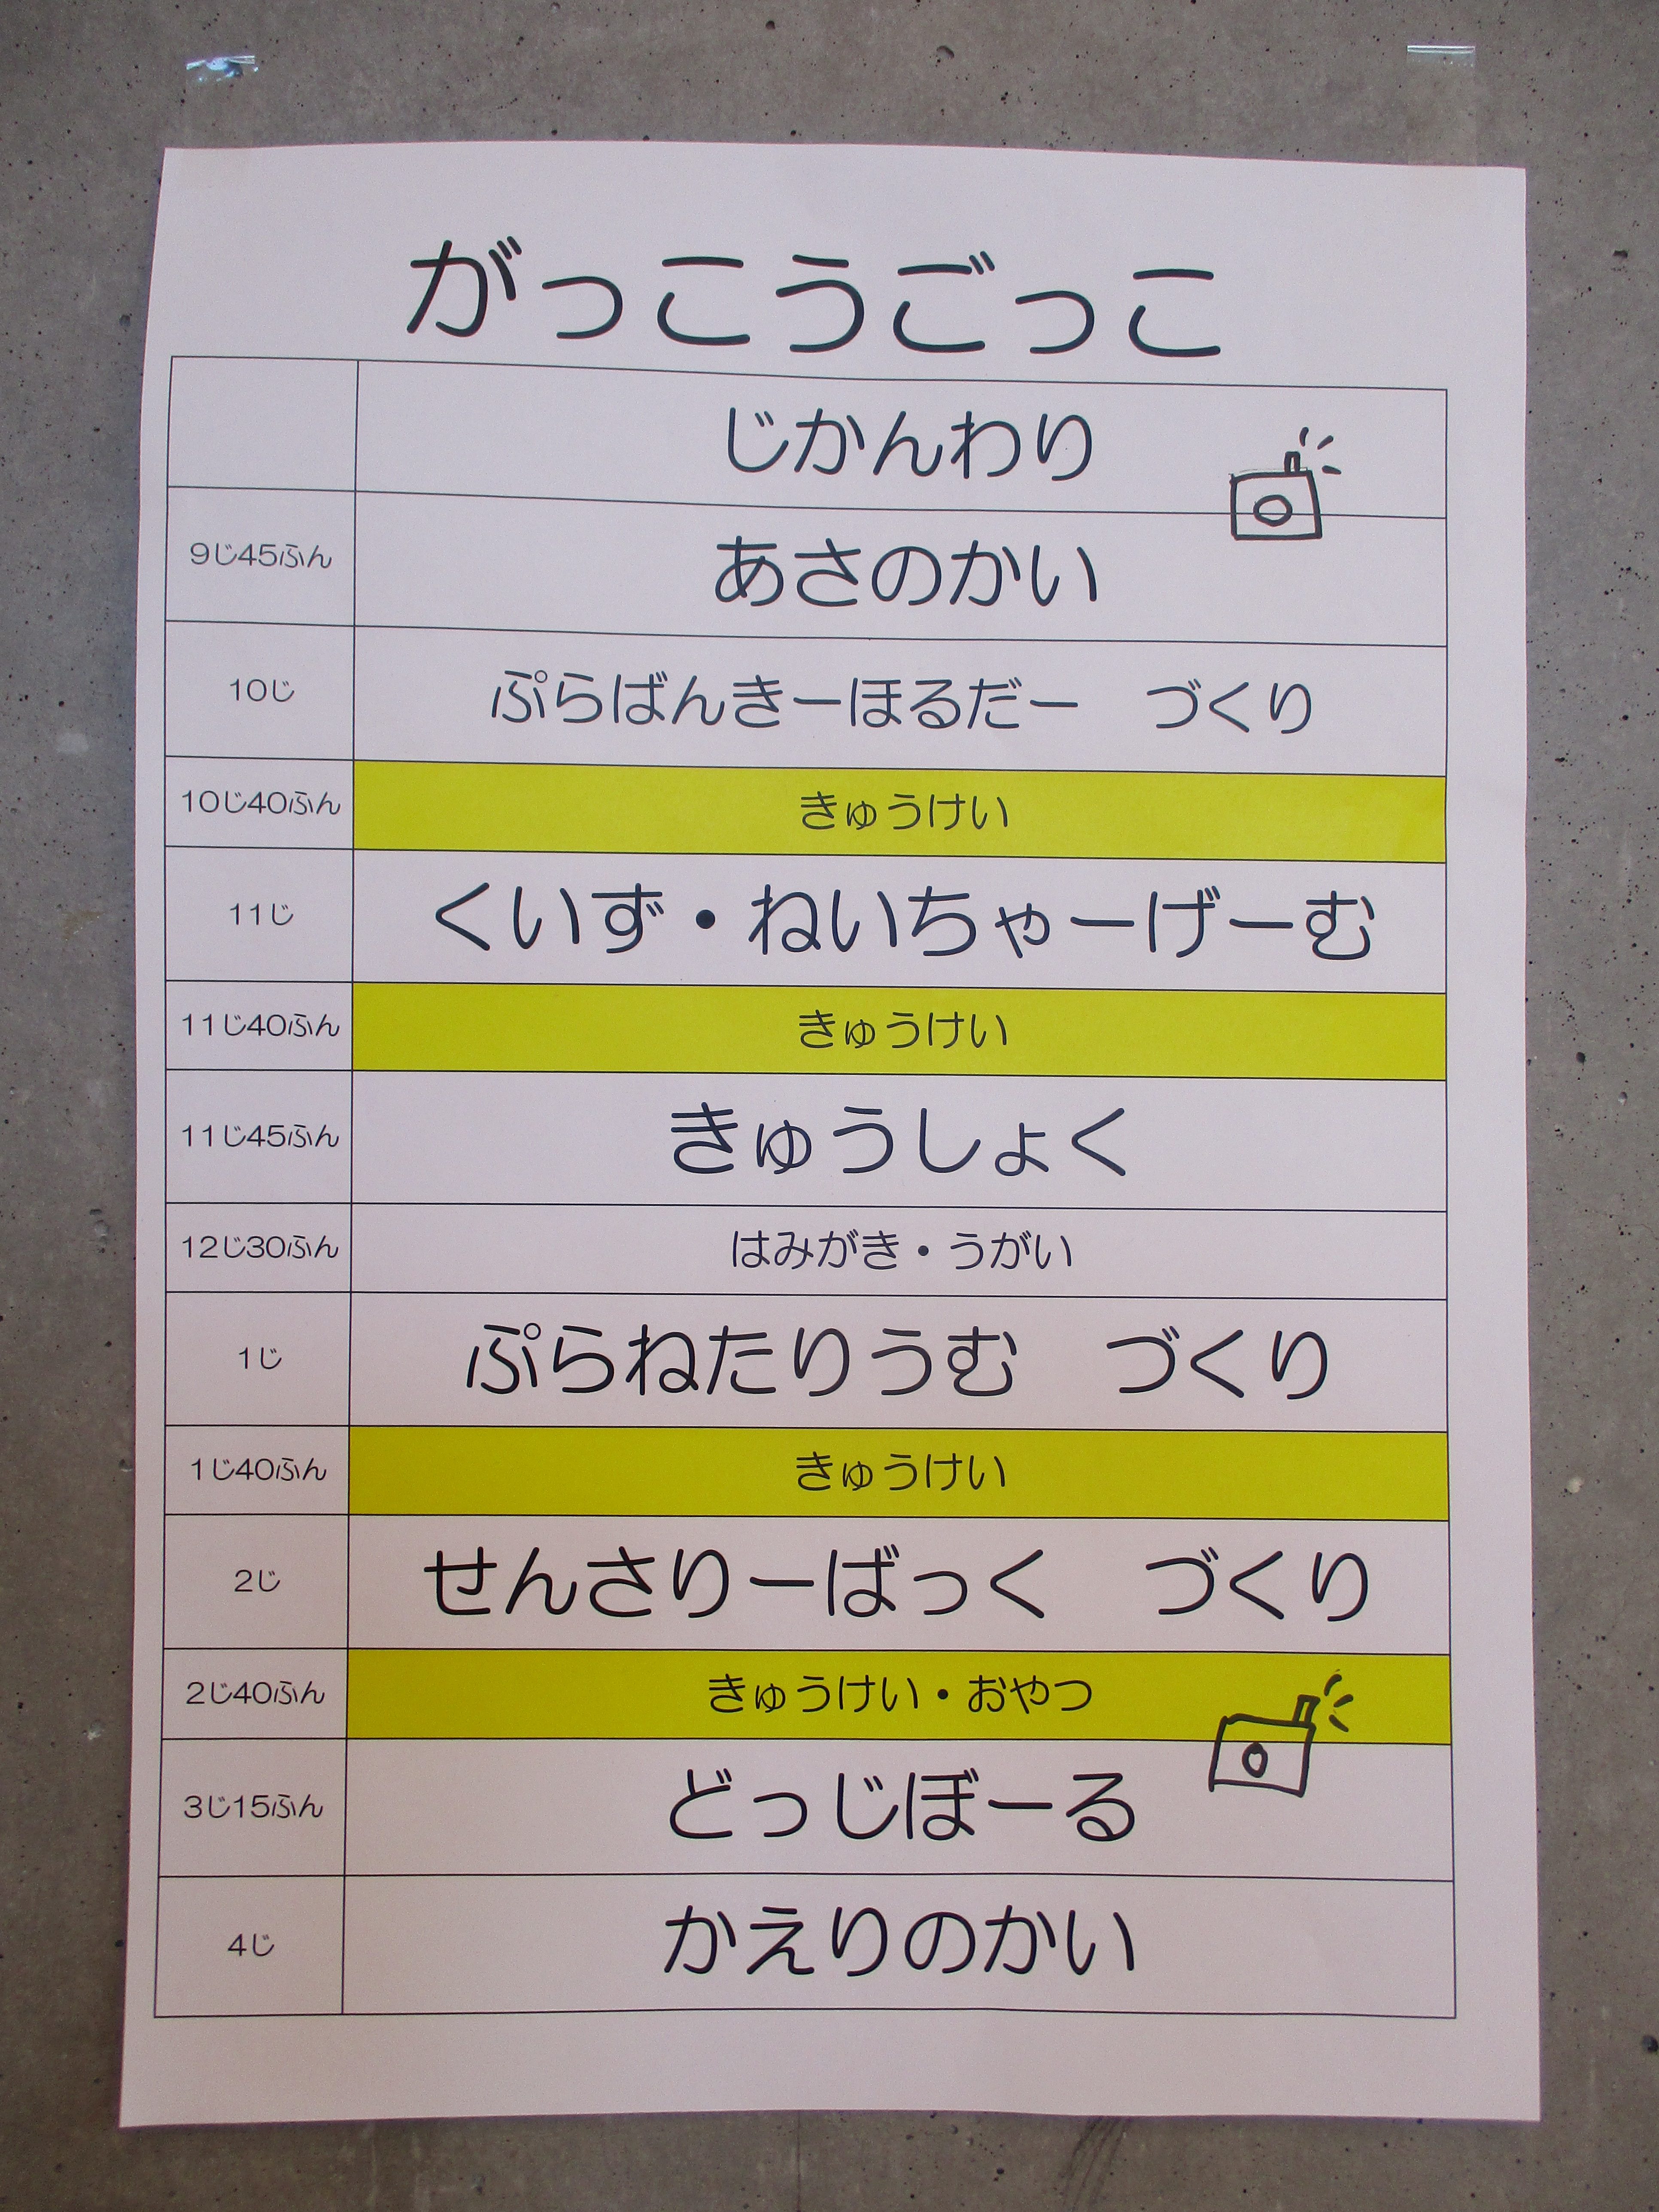 がっこうごっこ
じかんわり
9じ45ふん あさのかい
10じ ぷらばんきーほるだー　づくり
10じ40ふん きゅうけい
11じ くいず・ねいちゃーげーむ
11じ40ふん きゅうけい
11じ45ふん きゅうしょく
12じ30ふん はみがき・うがい
1じ ぷらねたりうむ　づくり
1じ40ふん きゅうけい
2じ せんさりーばっく　づくり
2じ40ふん きゅうけい・おやつ
3じ15ふん どっじぼーる
4じ かえりのかい